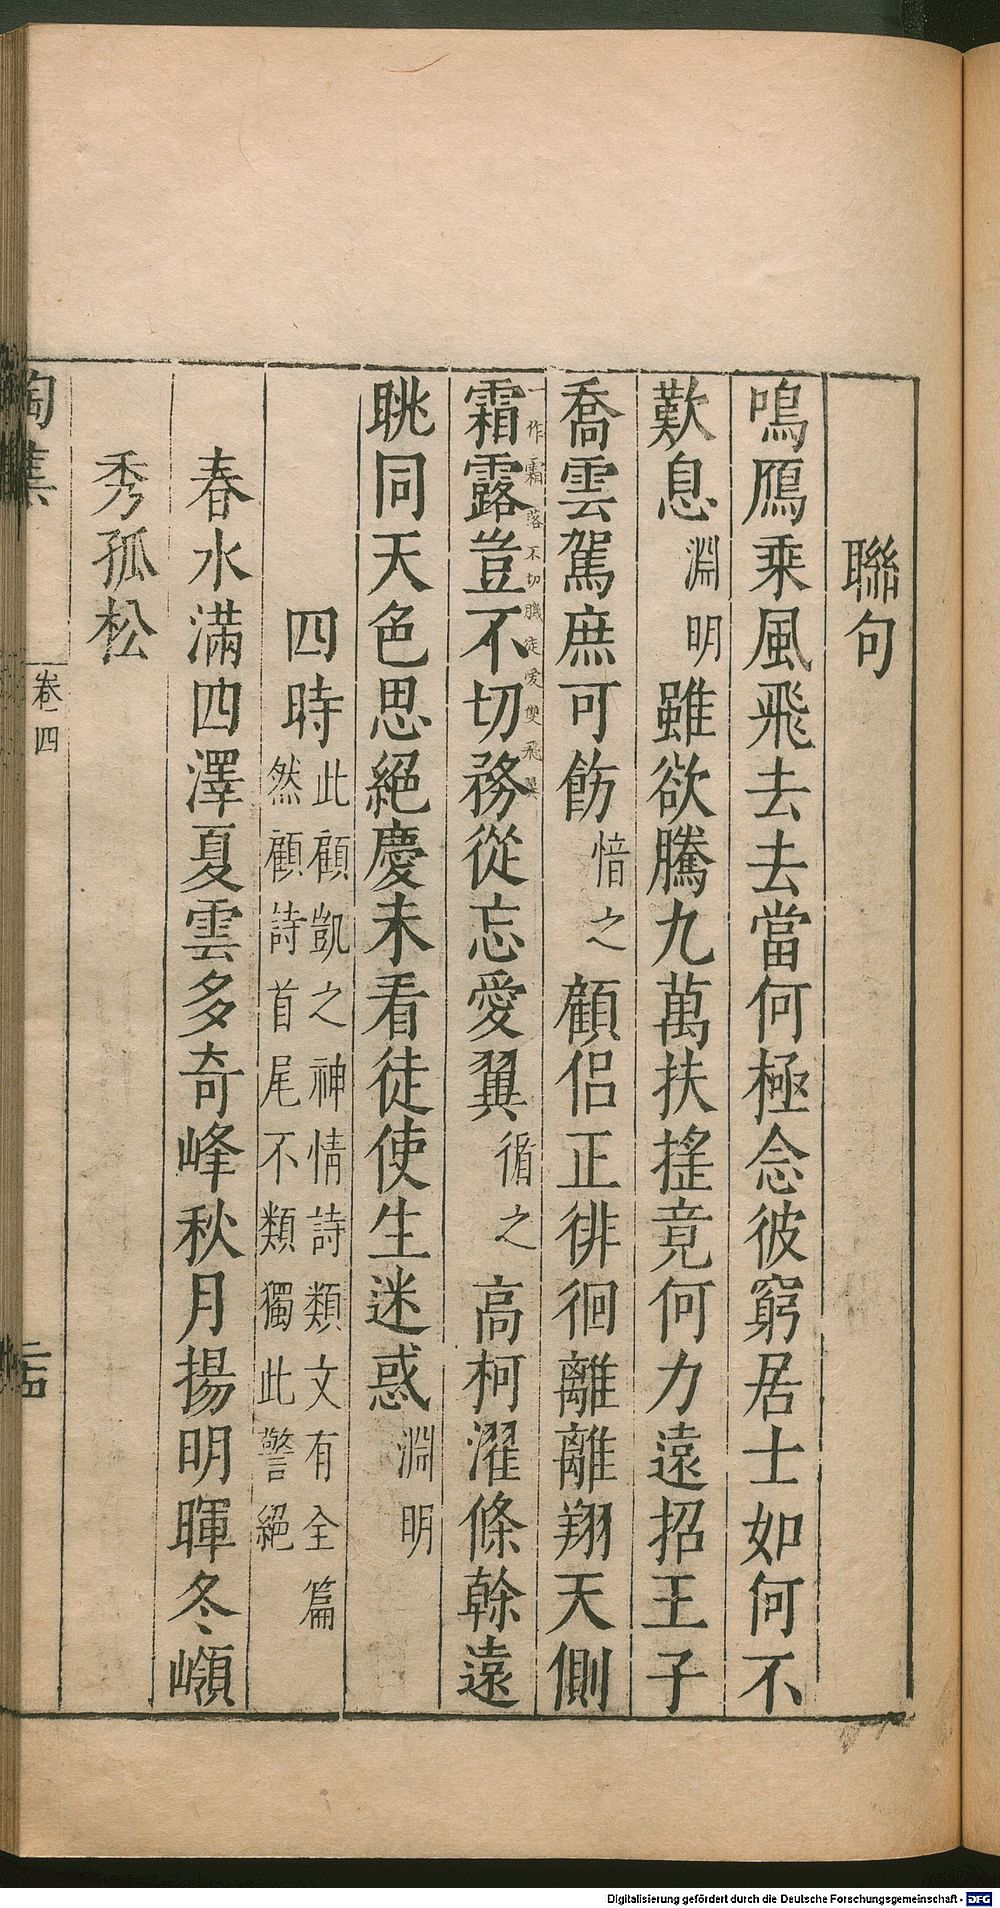 聯句
鳴鴈乘風飛去去當何極念彼窮居士如何不
歎息淵明雖欲騰九萬扶搖竟何力遠招王子
喬雲駕庶可飭愔之顧侶正徘徊離離翔天側
霜露豈不切務從忘愛翼循之高柯濯條幹遠
一作霜落不切肌徒愛雙飛翼
眺同天色思絕慶未看徒使生迷惑淵明
四時
此顧凱之神情詩類文有全篇
然顧詩首尾不類獨此警絕
春水滿四澤夏雲多奇峰秋月揚明暉冬嶺
秀孤松
陶集
卷四
二十四
Digitalisierung gefördert durch die Deutsche Forschungsgemeinschaft - DFG